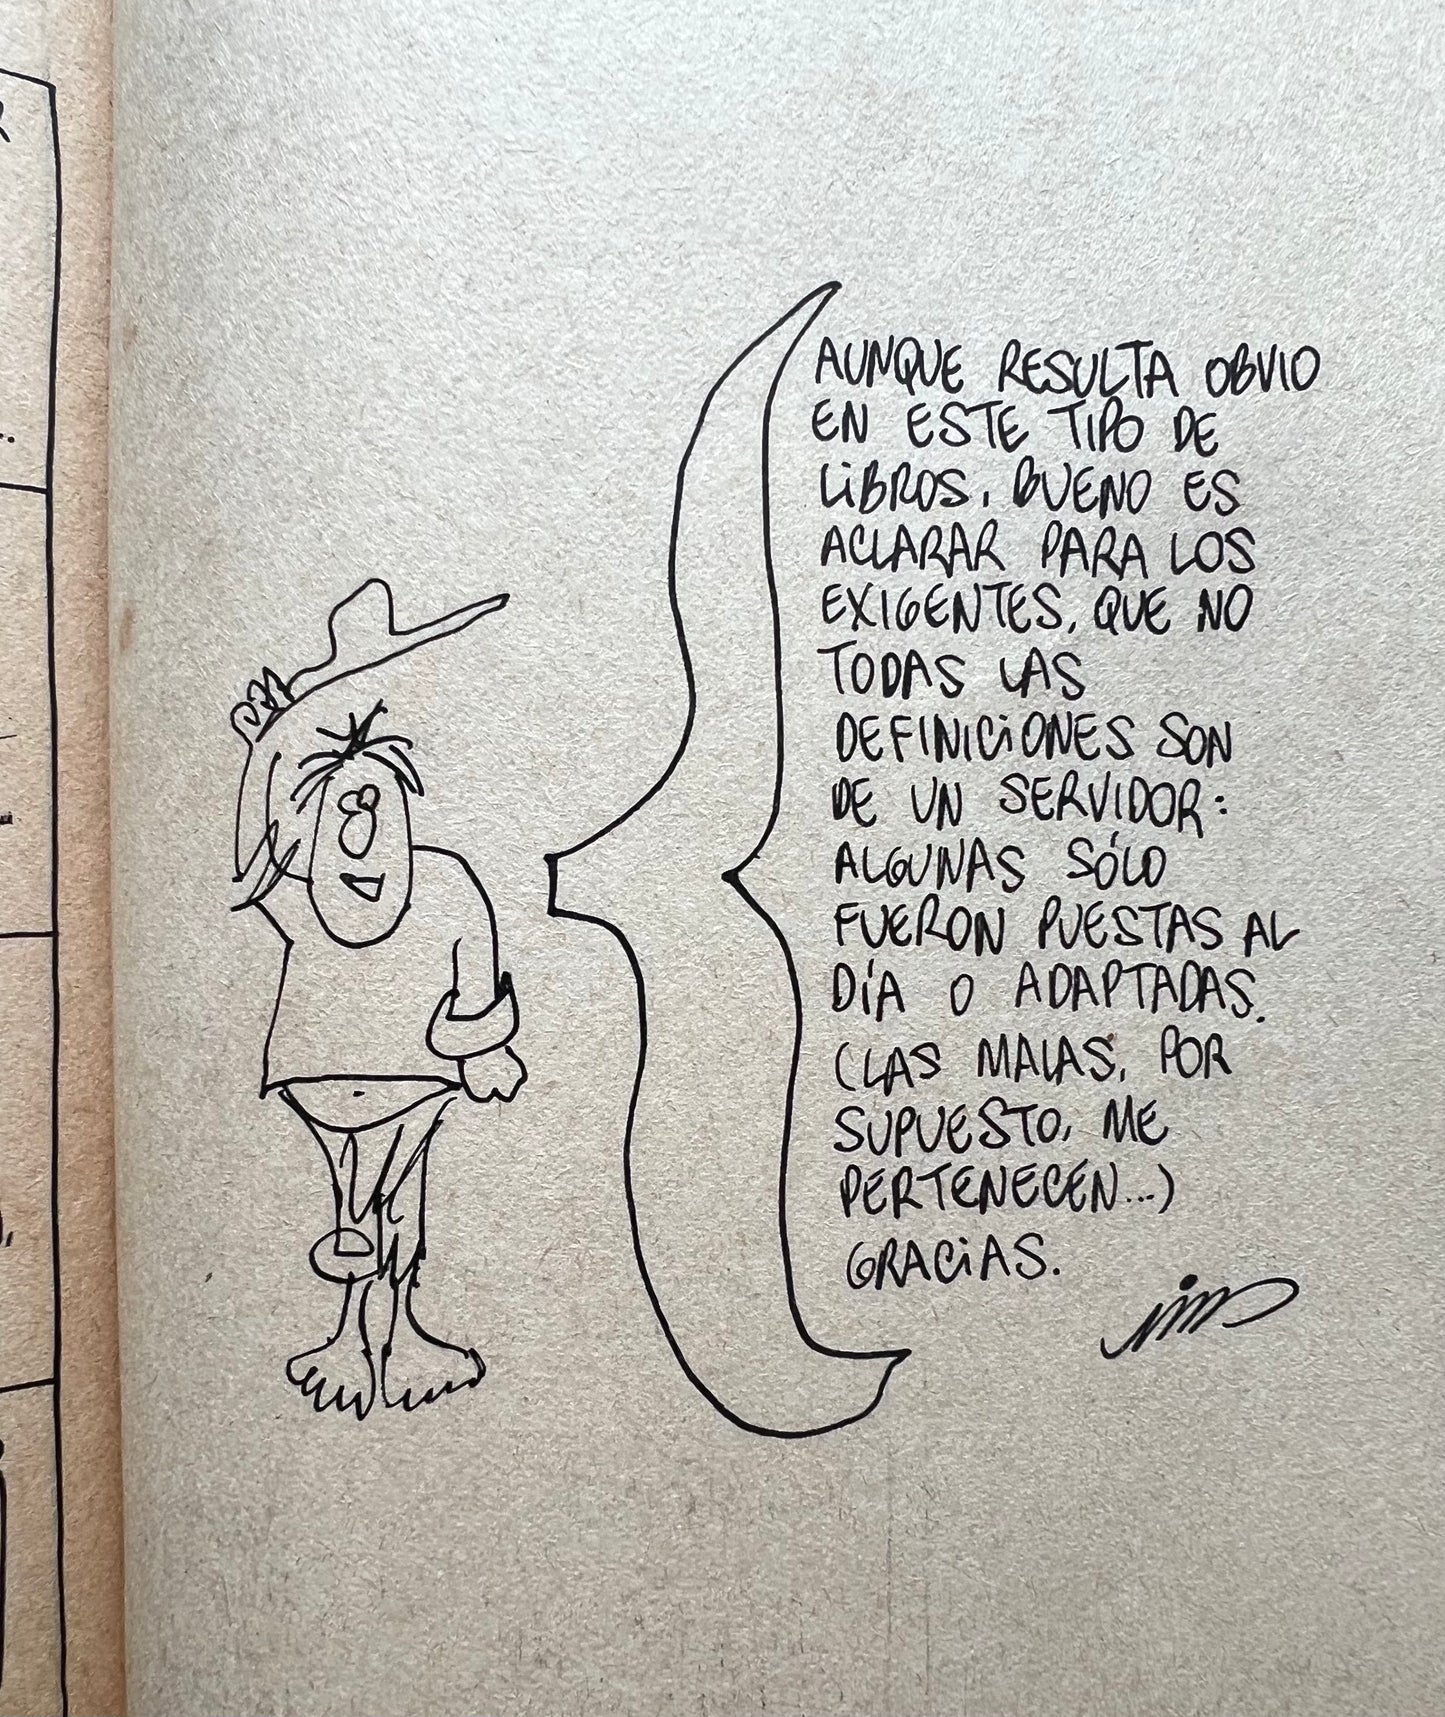 AUNQUE RESULTA OBVIO
EN ESTE TIPO DE
LIBROS, BUENO ES
ACLARAR PARA LOS
EXIGENTES, QUE NO
TODAS LAS
DEFINICIONES SON
DE UN SERVIDOR:
ALGUNAS SÓLO
FUERON PUESTAS AL
DÍA O ADAPTADAS.
(LAS MALAS, POR
SUPUESTO, ME
PERTENECEN...)
GRACIAS.